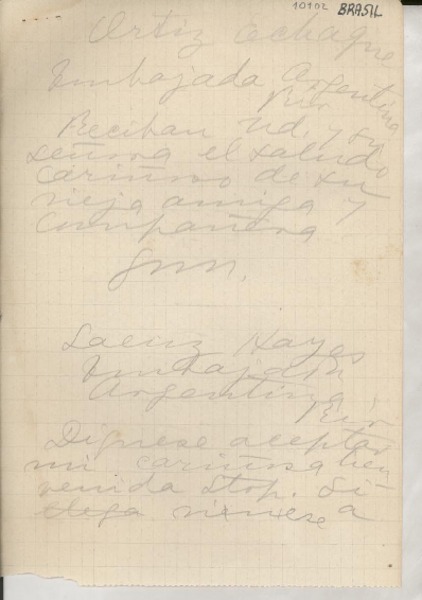 10102 BRASIL
Ortiz Echague
Embajada Argentina
Rio
Reciban Ud. y su
señora el saludo
cariñoso de su
vieja amiga y
compañera
Saenz Hayes
Embajada
Argentina
Rio
Dignese aceptar
mi cariñosa bien
venida Stop. Si
llega viniese a